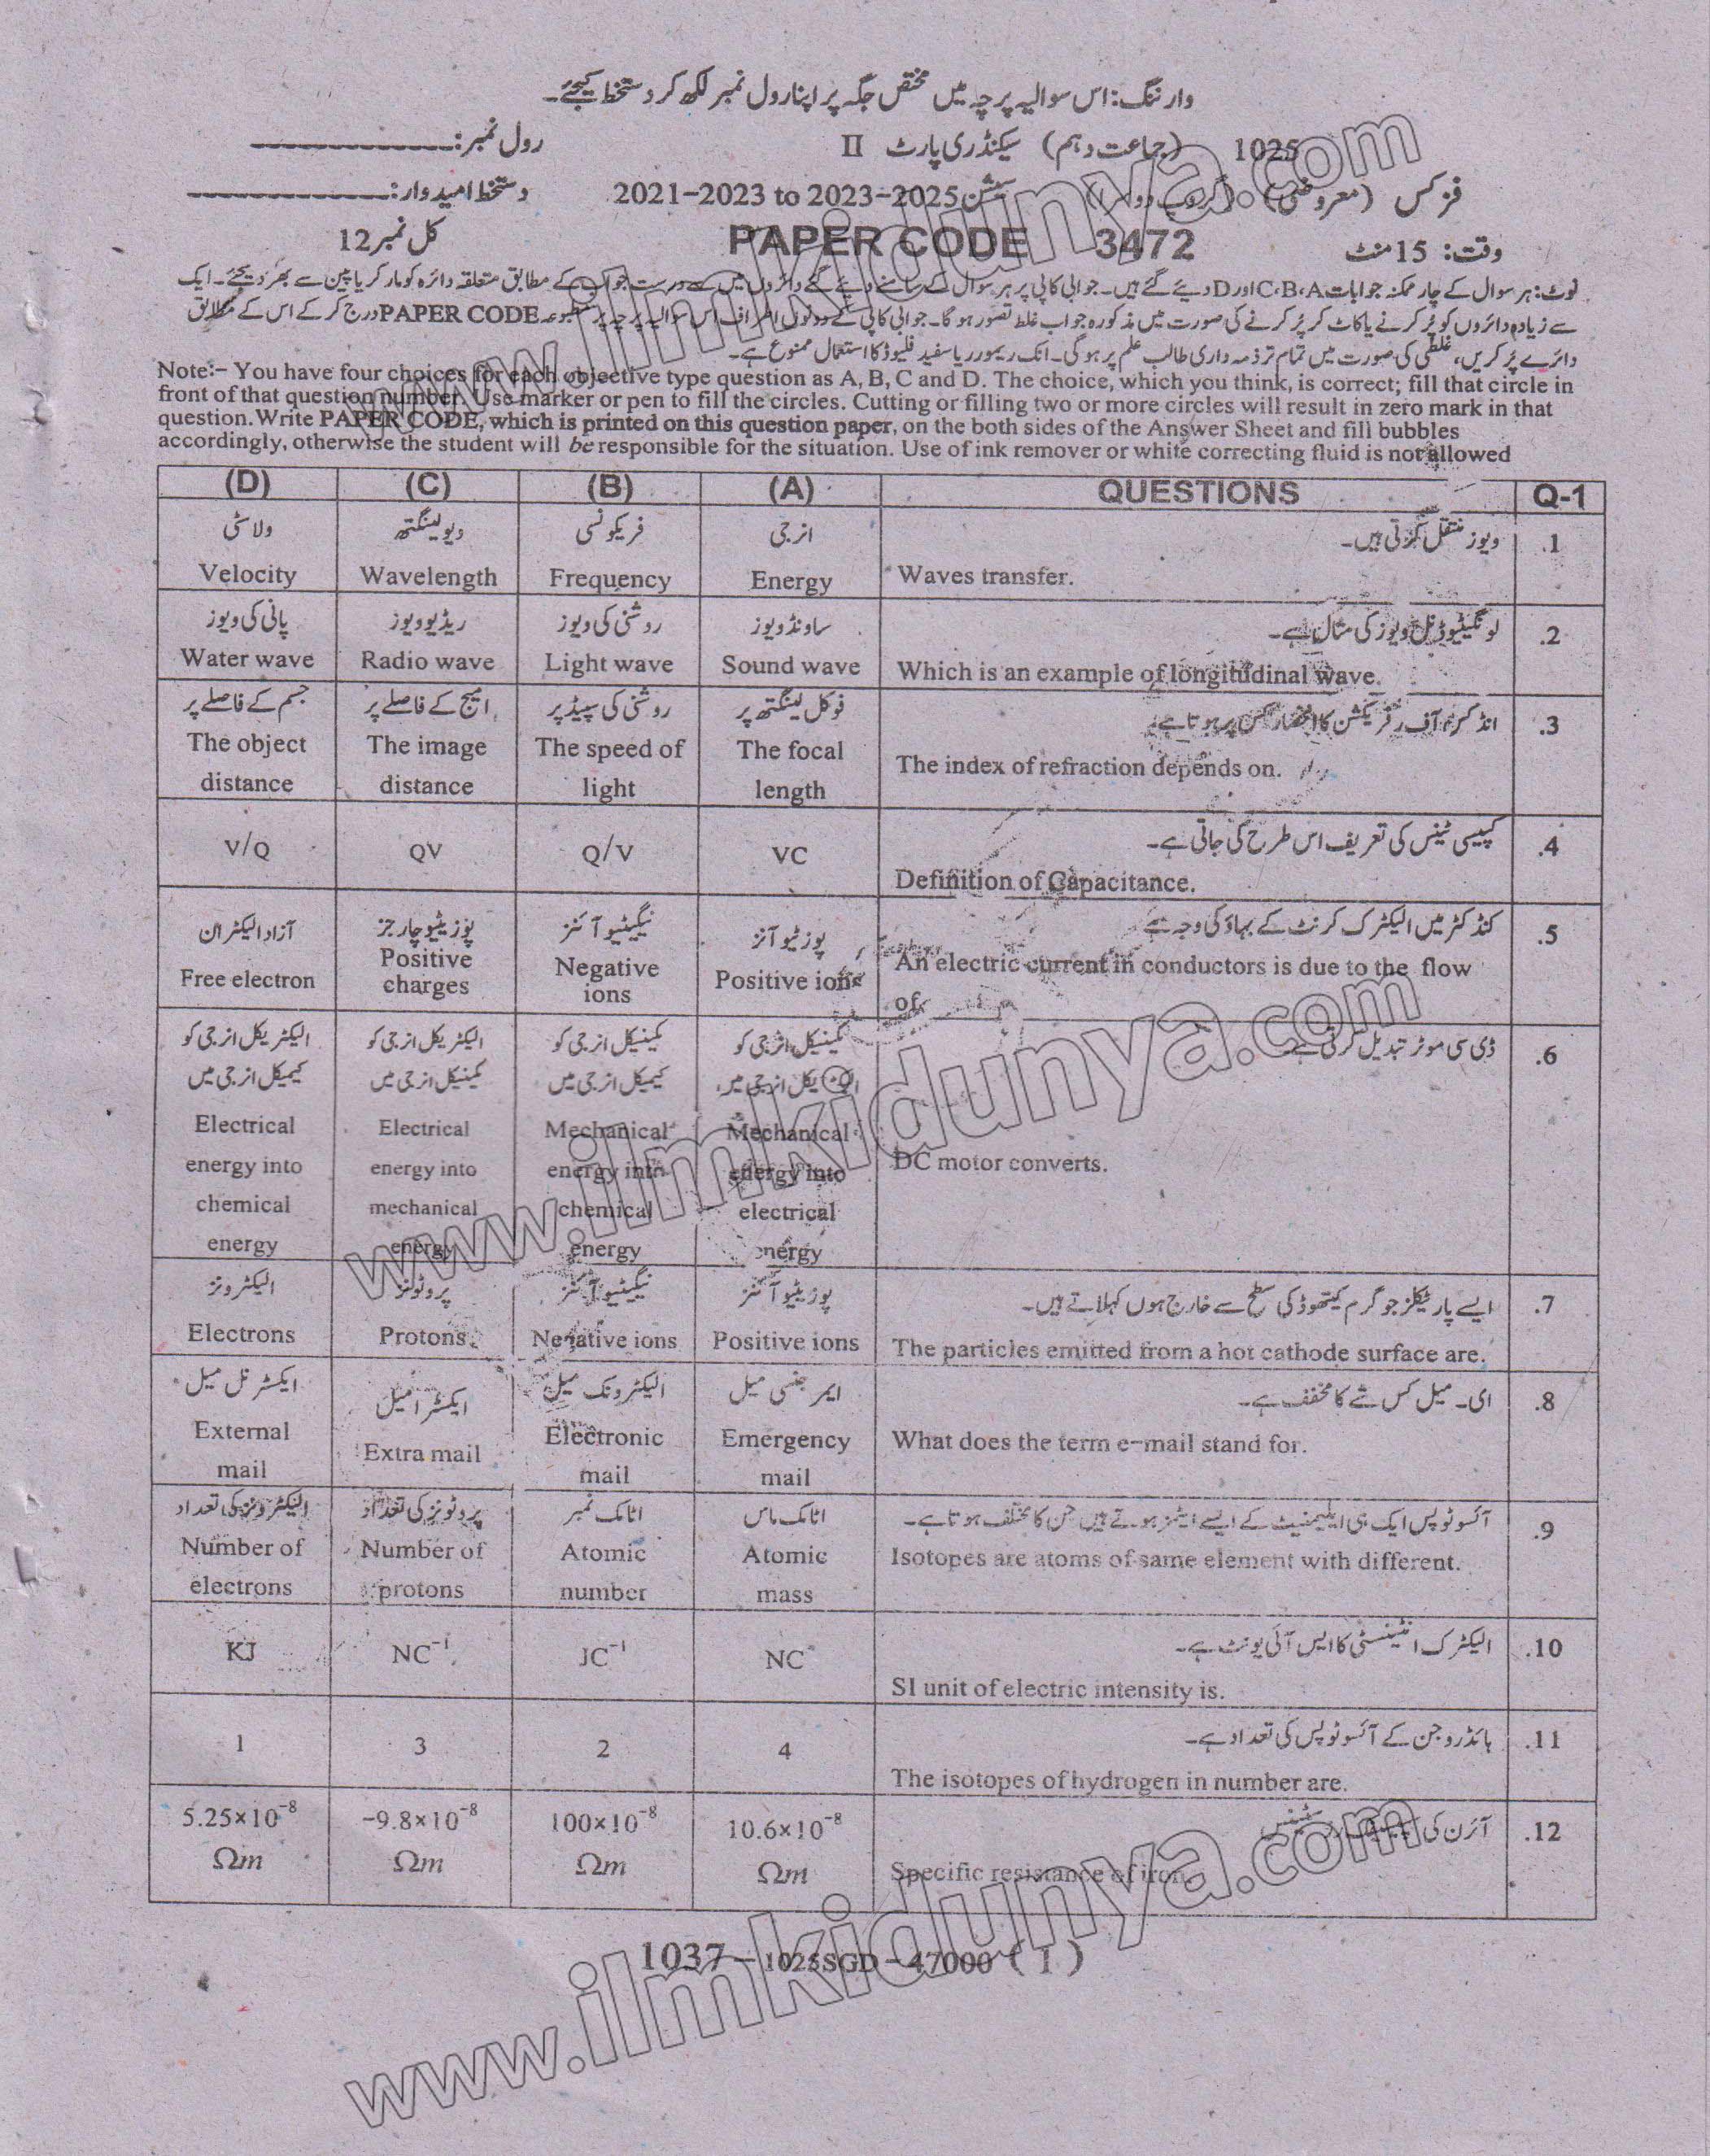 وارننگ: اس سوالیہ پرچہ میں مختص جگہ پر اپنا رول نمبر لکھ کر دستخط کیجئے۔
1025 (جماعت دہم) سیکنڈری پارٹ II رول نمبر: ____________
فزکس (معروضی) (گروپ دوسرا) سیشن 2021-2023 to 2023-2025 دستخط امیدوار: ____________
وقت: 15 منٹ PAPER CODE 3472 کل نمبر 12
نوٹ: ہر سوال کے چار ممکنہ جوابات C، B، A اور D دیئے گئے ہیں۔ جوابی کاپی پر ہر سوال کے سامنے دیئے گئے دائروں میں سے درست جواب کے مطابق متعلقہ دائرہ کو مارکر یا پین سے بھر دیجئے۔ ایک
سے زیادہ دائروں کو پُر کرنے یا کاٹ کر پُر کرنے کی صورت میں مذکورہ جواب غلط تصور ہو گا۔ جوابی کاپی کے دونوں اطراف اس سوالیہ پرچہ پر مطبوعہ PAPER CODE درج کر کے اس کے مطابق
دائرے پُر کریں، غلطی کی صورت میں تمام تر ذمہ داری طالب علم پر ہو گی۔ انک ریموور یا سفید فلیوڈ کا استعمال ممنوع ہے۔
Note:- You have four choices for each objective type question as A, B, C and D. The choice, which you think, is correct; fill that circle in
front of that question number. Use marker or pen to fill the circles. Cutting or filling two or more circles will result in zero mark in that
question. Write PAPER CODE, which is printed on this question paper, on the both sides of the Answer Sheet and fill bubbles
accordingly, otherwise the student will be responsible for the situation. Use of ink remover or white correcting fluid is not allowed
(D) (C) (B) (A) QUESTIONS Q-1
ولاسٹی ویولینگتھ فریکونسی انرجی ویوز منتقل کرتی ہیں۔ .1
Velocity Wavelength Frequency Energy Waves transfer.
پانی کی ویوز ریڈیو ویوز روشنی کی ویوز ساونڈ ویوز لونگیٹیوڈنل ویوز کی مثال ہے۔ .2
Water wave Radio wave Light wave Sound wave Which is an example of longitudinal wave.
جسم کے فاصلے پر امیج کے فاصلے پر روشنی کی سپیڈ پر فوکل لینگتھ پر انڈکس آف رفریکشن کا انحصار کس پر ہوتا ہے۔ .3
The object The image The speed of The focal The index of refraction depends on.
distance distance light length
V/Q QV Q/V VC کپیسی ٹینس کی تعریف اس طرح کی جاتی ہے۔ .4
Definition of Capacitance.
آزاد الیکٹران پوزیٹیو چارجز نیگیٹیو آئنز پوزٹیو آئنز کنڈکٹر میں الیکٹرک کرنٹ کے بہاؤ کی وجہ ہے .5
Free electron Positive Negative Positive ions An electric current in conductors is due to the flow
charges ions of
الیکٹریکل انرجی کو الیکٹریکل انرجی کو مکینیکل انرجی کو مکینیکل انرجی کو ڈی سی موٹر تبدیل کرتی ہے۔ .6
کیمیکل انرجی میں مکینیکل انرجی میں کیمیکل انرجی میں الیکٹریکل انرجی میں
Electrical Electrical Mechanical Mechanical DC motor converts.
energy into energy into energy into energy into
chemical mechanical chemical electrical
energy energy energy energy
الیکٹرونز پروٹونز نیگیٹیو آئنز پوزیٹیو آئنز ایسے پارٹیکلز جو گرم کیتھوڈ کی سطح سے خارج ہوں کہلاتے ہیں۔ .7
Electrons Protons Negative ions Positive ions The particles emitted from a hot cathode surface are.
ایکسٹرنل میل ایکسٹرا میل الیکٹرونک میل ایمرجنسی میل ای۔ میل کس شے کا مخفف ہے۔ .8
External Extra mail Electronic Emergency What does the term e-mail stand for.
mail mail mail
الیکٹرونز کی تعداد پروٹونز کی تعداد اٹامک نمبر اٹامک ماس آئسوٹوپس ایک ہی ایلیمنٹ کے ایسے ایٹمز ہوتے ہیں جن کا مختلف ہوتا ہے۔ .9
Number of Number of Atomic Atomic Isotopes are atoms of same element with different.
electrons protons number mass
KJ NC⁻¹ JC⁻¹ NC الیکٹرک انٹینسٹی کا ایس آئی یونٹ ہے۔ .10
SI unit of electric intensity is.
1 3 2 4 ہائڈروجن کے آئسوٹوپس کی تعداد ہے۔ .11
The isotopes of hydrogen in number are.
5.25×10⁻⁸ -9.8×10⁻⁸ 100×10⁻⁸ 10.6×10⁻⁸ آئرن کی .12
Ωm Ωm Ωm Ωm Specific resistance of iron.
1037 - 1025SGD - 47000 ( 1 )
www.ilmkidunya.com
www.ilmkidunya.com
www.ilmkidunya.com